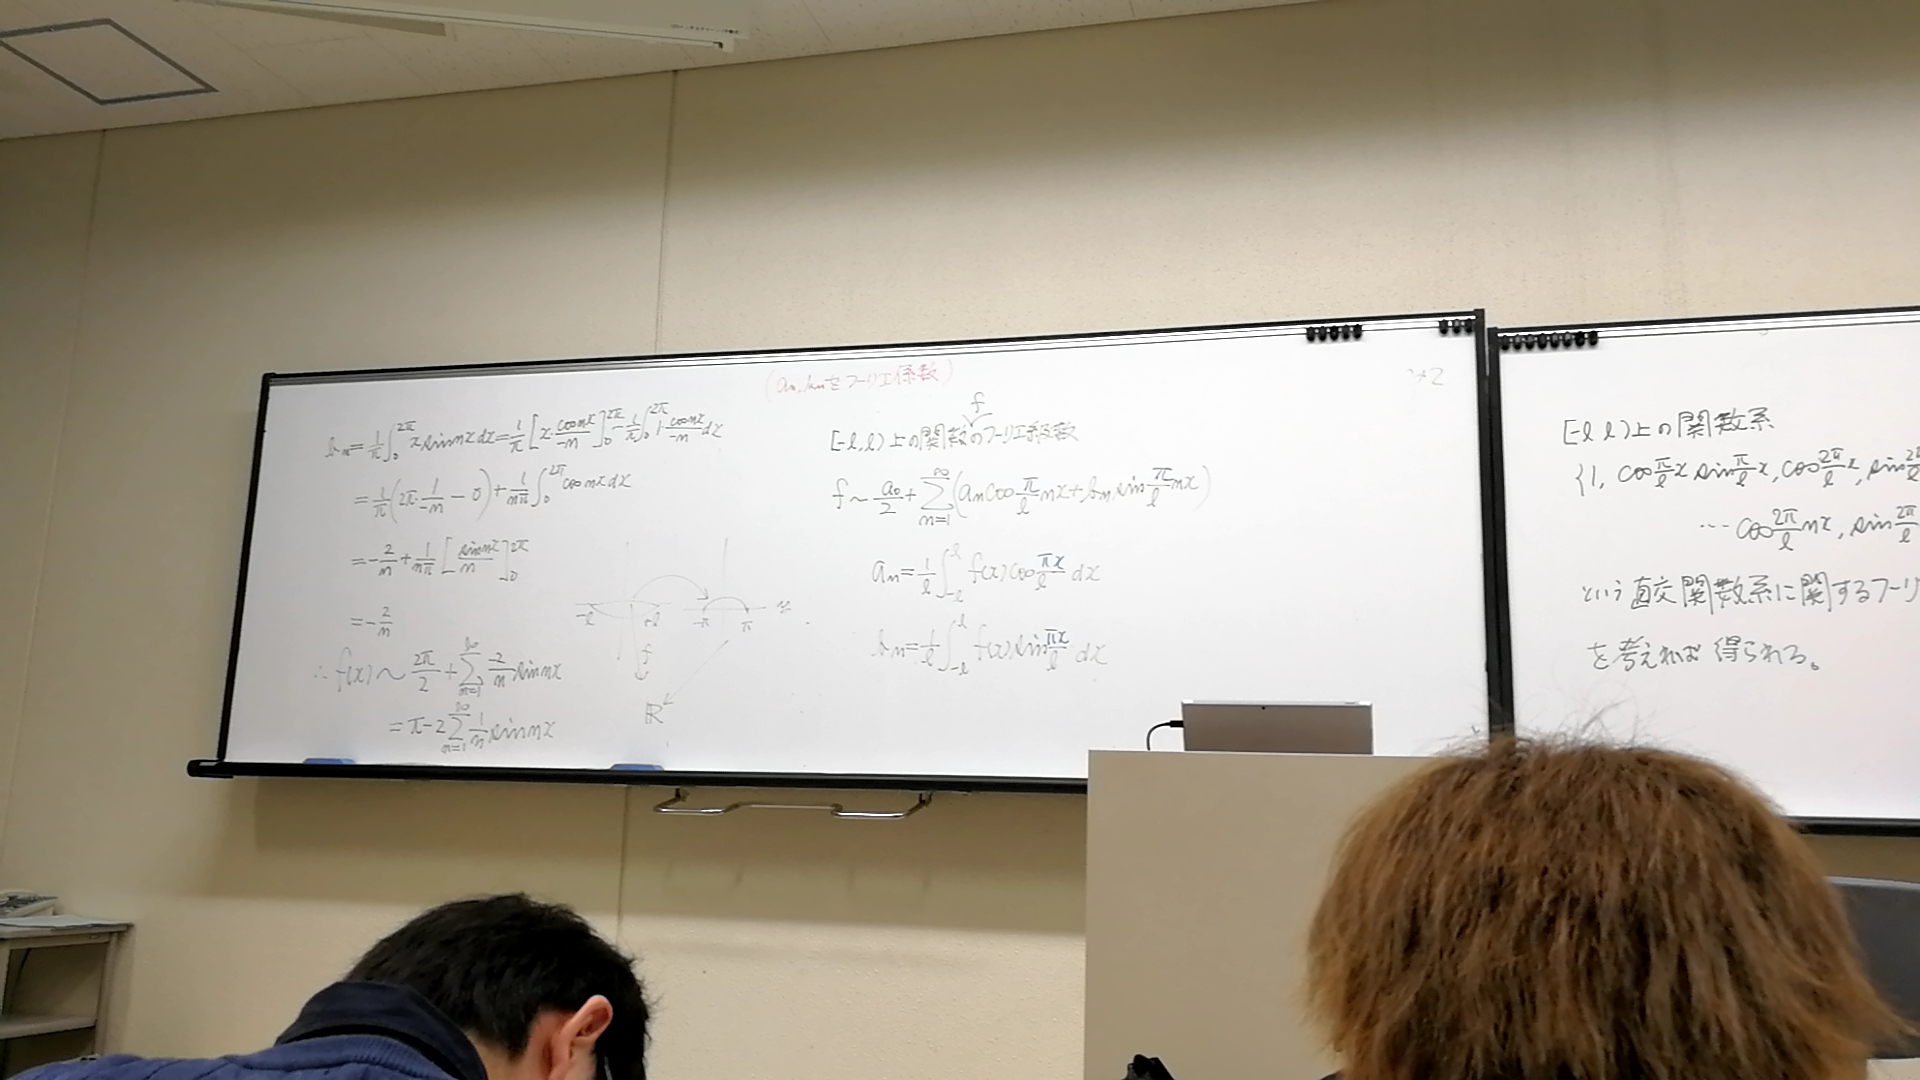 (an, bnをフーリエ係数)
bn = 1/π ∫_0^{2π} x sin nx dx = 1/π [x · cos nx/-n]_0^{2π} - 1/π ∫_0^{2π} 1 · cos nx/-n dx
= 1/π (2π · 1/-n - 0) + 1/nπ ∫_0^{2π} cos nx dx
= -2/n + 1/nπ [sin nx/n]_0^{2π}
= -2/n
∴ f(x) ~ 2π/2 + Σ_{n=1}^{∞} -2/n sin nx
= π - 2 Σ_{n=1}^{∞} 1/n sin nx
-l
-π π
f
R
f
[-l, l) 上の関数のフーリエ級数
f ~ a0/2 + Σ_{n=1}^{∞} (an cos π/l nx + bn sin π/l nx)
an = 1/l ∫_{-l}^{l} f(x) cos πx/l dx
bn = 1/l ∫_{-l}^{l} f(x) sin πx/l dx
[-l l) 上の関数系
{1, cos π/l x, sin π/l x, cos 2π/l x, sin
… cos 2π/l nx, sin 2π/l
という直交関数系に関するフーリ
を考えれば得られる。